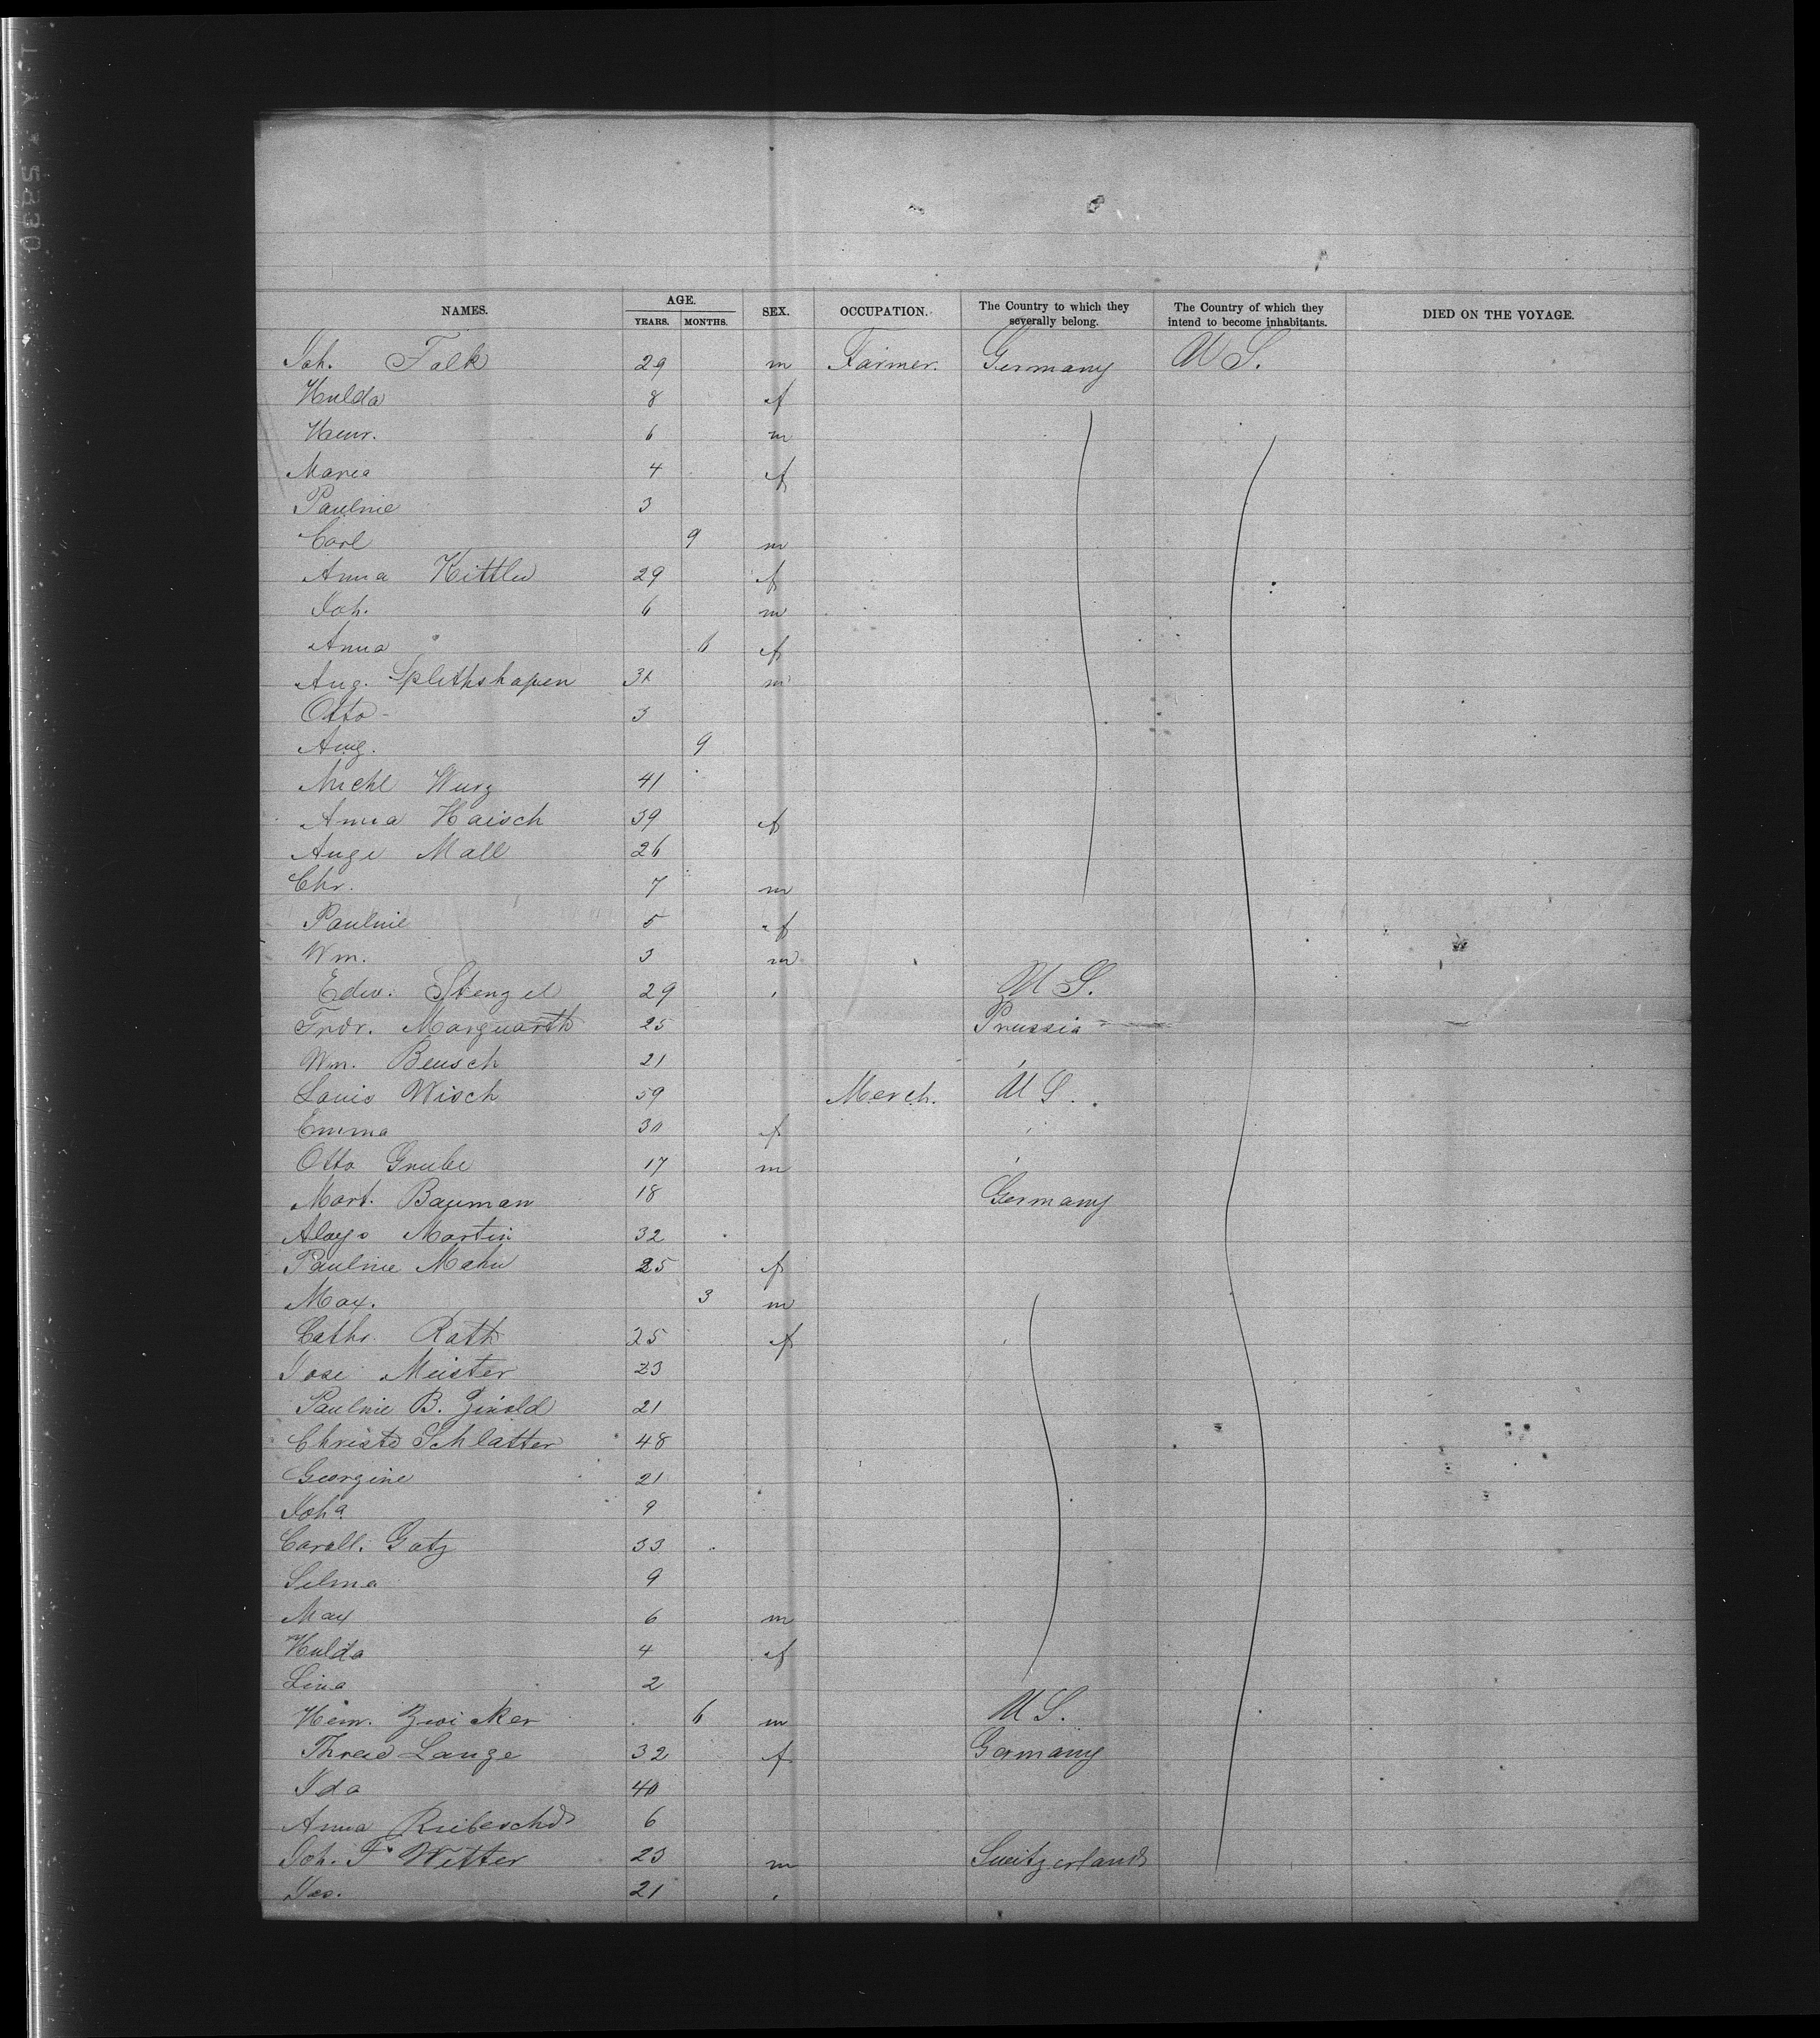 NAMES. AGE. YEARS. MONTHS. SEX. OCCUPATION. The Country to which they severally belong. The Country of which they intend to become inhabitants. DIED ON THE VOYAGE.
Joh. Falk 29 m Farmer. Germany U S.
Hulda 8 f
Heinr. 6 m
Maria 4 f
Pauline 3
Carl 9 m
Anna Kittler 29 f
Joh. 6 m
Anna " 6 f
Aug. Splethshapen m
Otto 3
Aug. 9
Michl Wurz 41
Anna Haisch 39 f
Auge Mall 26
Chr. 7 m
Pauline 5 f
Wm. 3 m
Edw. Stenzel 29 U S.
Frdr. Marguarth 25 Prussia
Wm. Beusch 21
Louis Wisch 59 Merch. U S.
Emma 30 f
Otto Grube 17 m
Mart. Bauman 18 Germany
Aloys Martin 32
Pauline Mahn 25 f
Max. 3 m
Cathr. Rath 25 f
Jose Meister 23
Pauline B. 21
Christe Schlatter 48
Georgine 21
Joha 9
Caroll. Gotz 33
Selma 9
Max 6 m
Hulda 4 f
Lina 2
Heinr. Zwicker 6 m U S.
Lange 32 f Germany
Ida 40
Anna 6
Joh. F. Witter 23 m Switzerland
21